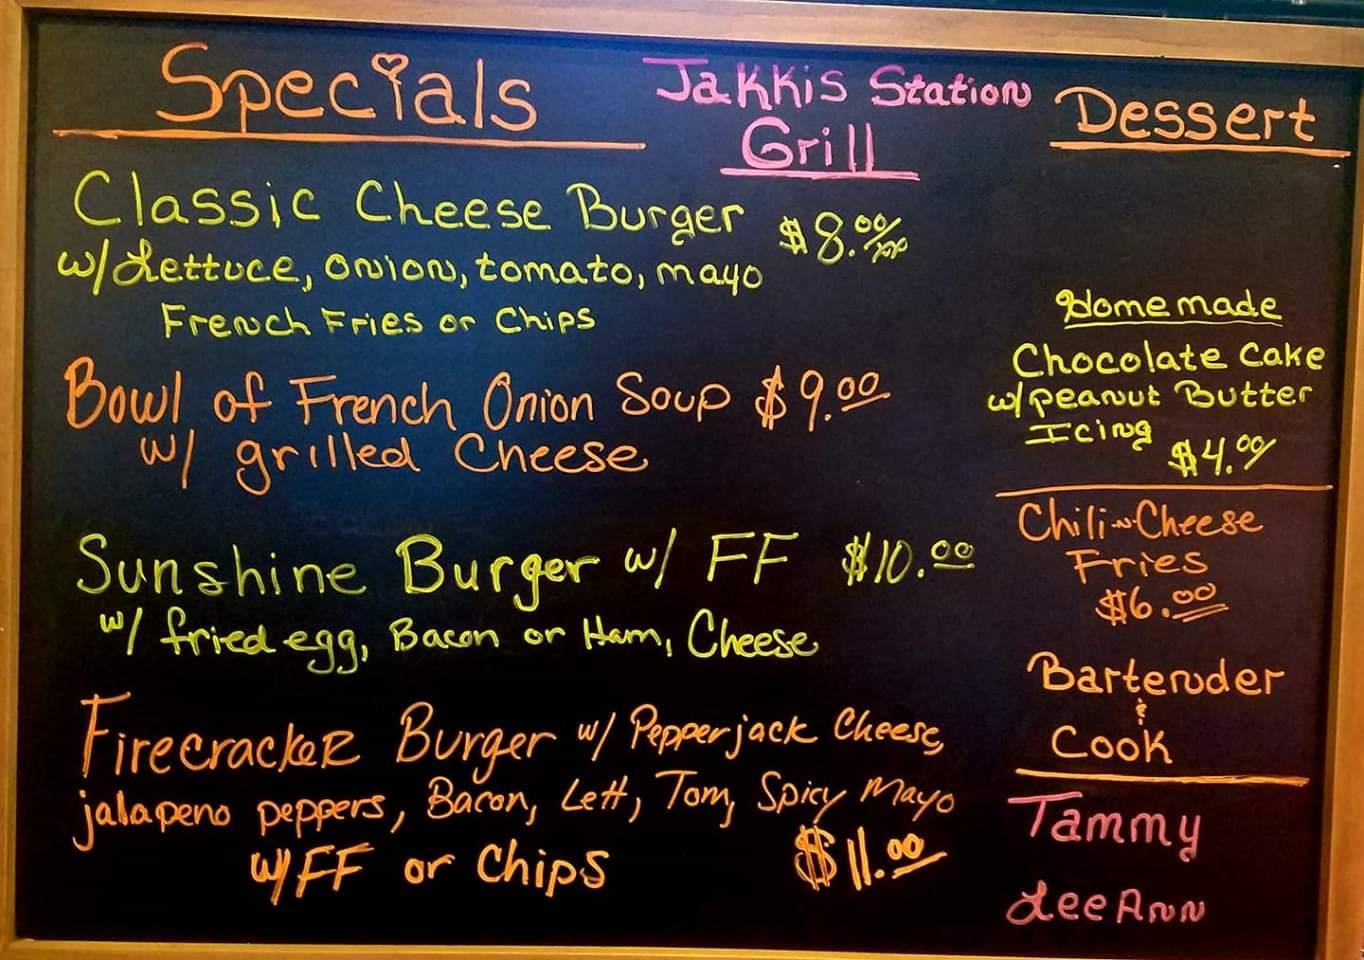 Specials
Jakkis Station
Grill
Classic Cheese Burger $8.00/xx
w/Lettuce, onion, tomato, mayo
French Fries or Chips
Bowl of French Onion Soup $9.00
w/ grilled Cheese
Sunshine Burger w/ FF $10.00
w/ fried egg, Bacon or Ham, Cheese
Firecracker Burger w/ Pepperjack Cheese,
jalapeno peppers, Bacon, Lett, Tom, Spicy Mayo
w/FF or Chips $11.00
Dessert
Homemade
Chocolate Cake
w/peanut Butter
Icing
$4.00
Chili-n-Cheese
Fries
$6.00
Bartender
&
Cook
Tammy
LeeAnn